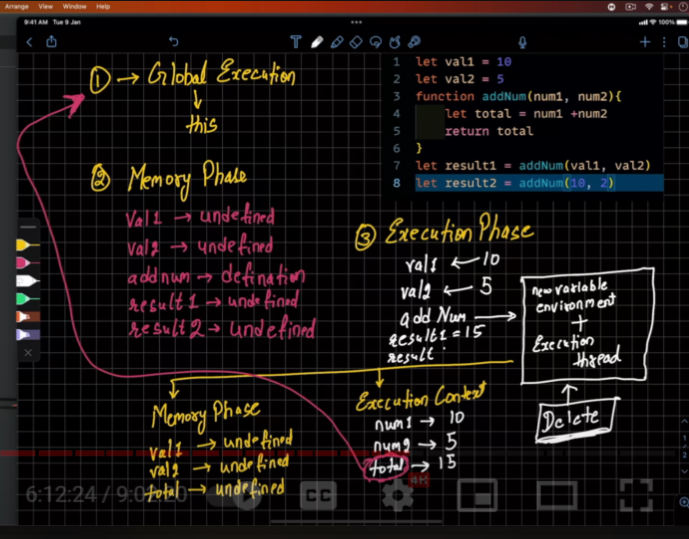 Arrange View Window Help
9:41 AM Tue 9 Jan
100%
1 let val1 = 10
2 let val2 = 5
3 function addNum(num1, num2){
4 let total = num1 +num2
5 return total
6 }
7 let result1 = addNum(val1, val2)
8 let result2 = addNum(10, 2)
① → Global Execution
↓
this
② Memory Phase
Val1 → undefined
val2 → undefined
addnum → defination
result1 → undefined
result2 → undefined
③ Execution Phase
val1 ← 10
val2 ← 5
add Num →
result1 = 15
result
new variable
environment
+
Execution
thread
Delete
Memory Phase
val1 → undefined
val2 → undefined
total → undefined
Execution Context
num1 → 10
num2 → 5
total → 15
6:12:24 / 9:01:20
CC